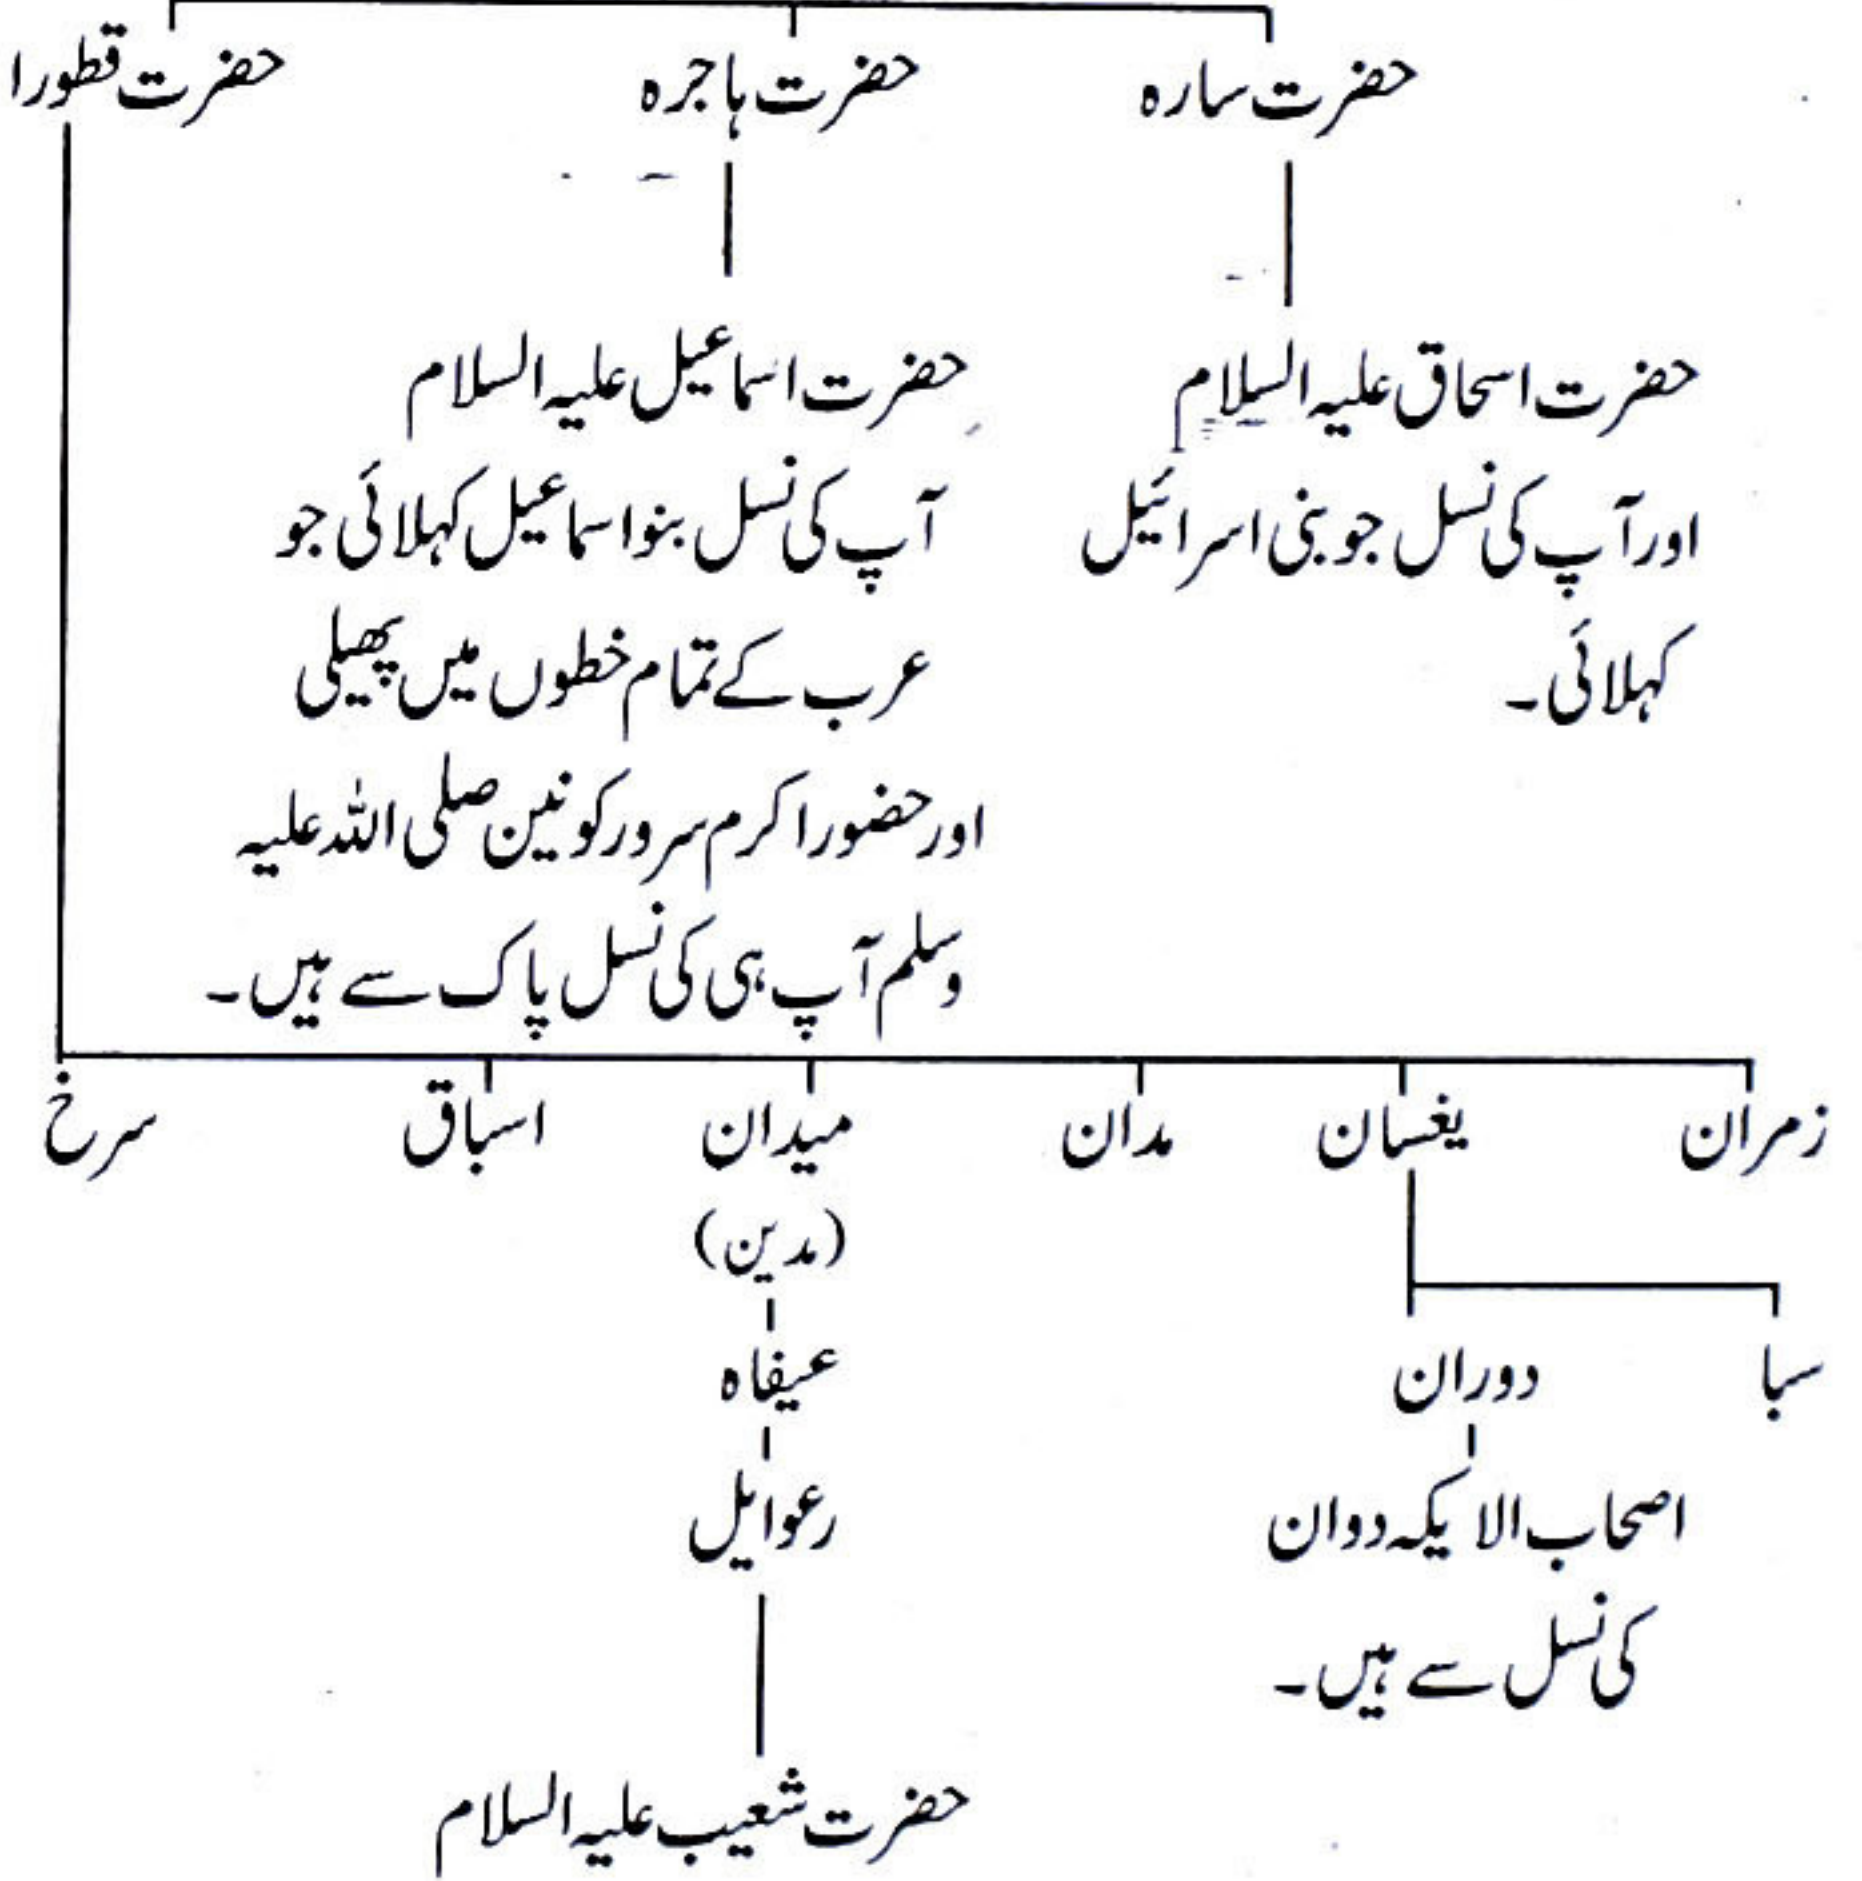 حضرت سارہ
حضرت ہاجرہ
حضرت قطورا
حضرت اسحاق علیہ السلام
اور آپ کی نسل جو بنی اسرائیل
کہلائی۔
حضرت اسماعیل علیہ السلام
آپ کی نسل بنو اسماعیل کہلائی جو
عرب کے تمام خطوں میں پھیلی
اور حضور اکرم سرور کونین صلی اللہ علیہ
وسلم آپ ہی کی نسل پاک سے ہیں۔
زمران
یغسان
مدان
میدان
اسباق
سرخ
(مدین)
سبا
دوران
عیفاہ
اصحاب الایکہ دوان
کی نسل سے ہیں۔
رعوایل
حضرت شعیب علیہ السلام